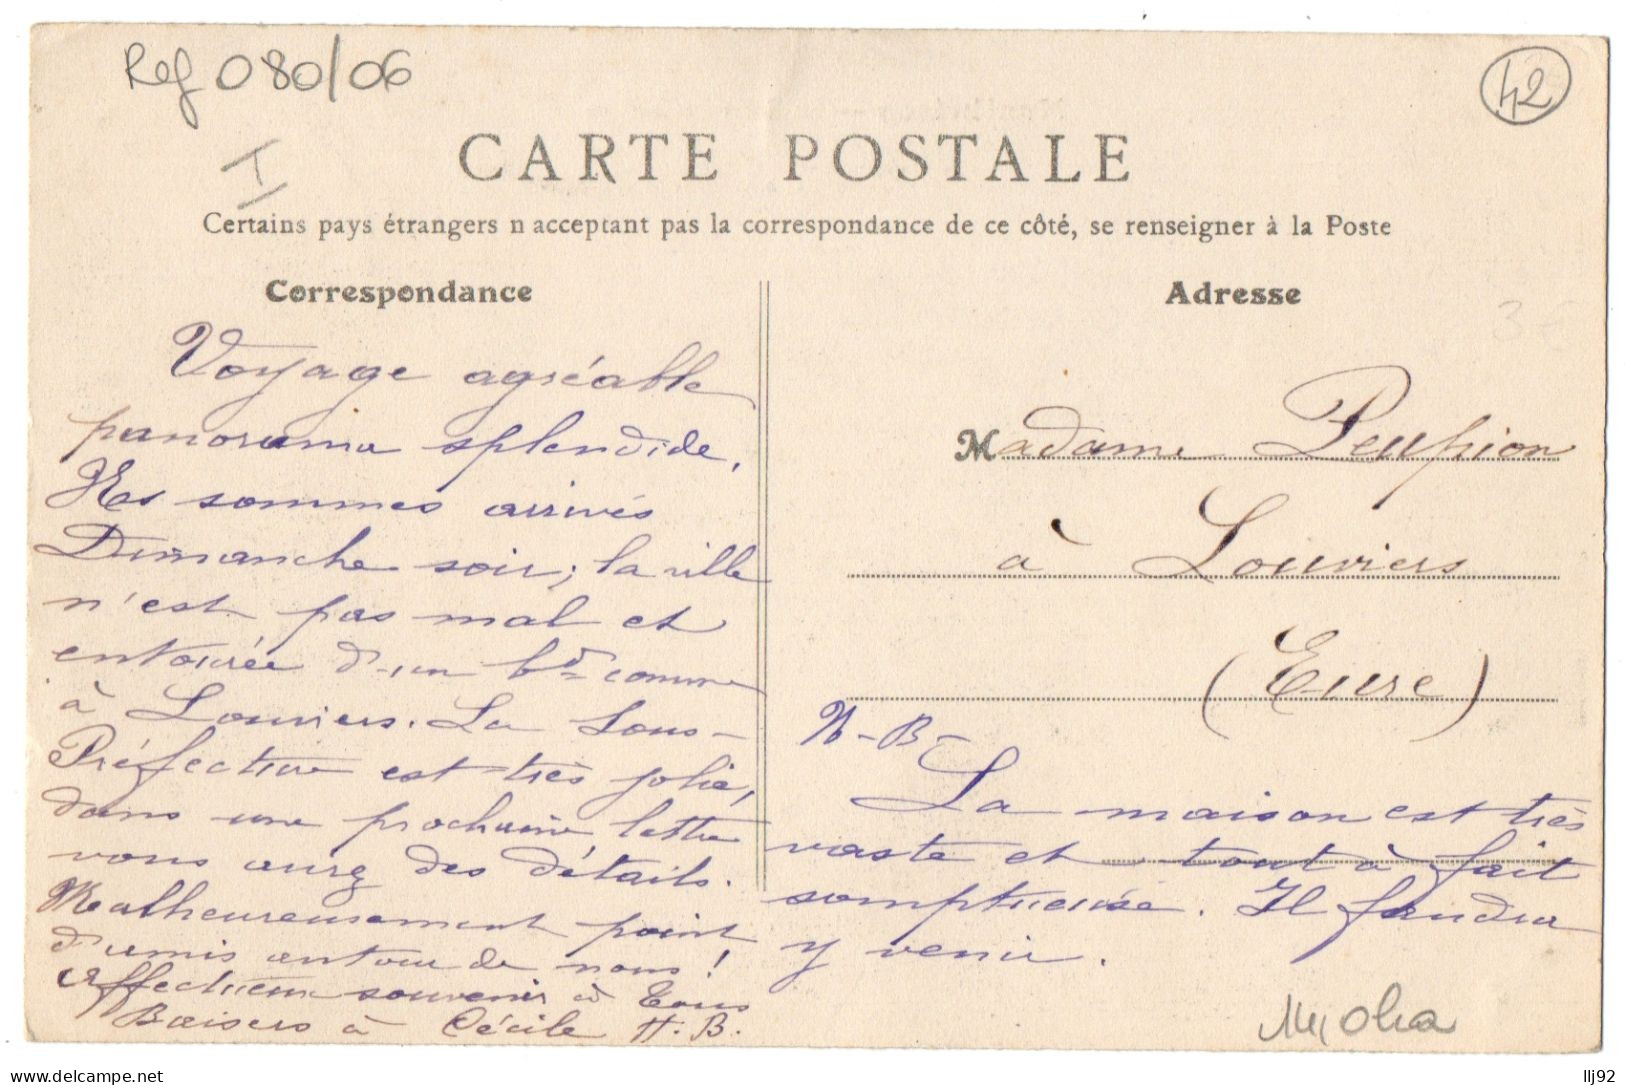 Ref 080/06
42
I
CARTE POSTALE
Certains pays étrangers n acceptant pas la correspondance de ce côté, se renseigner à la Poste
Correspondance
Voyage agréable
panorama splendide.
Ns sommes arrivés
Dimanche soir; la ville
n'est pas mal et
entourée d'un bd comme
à Louviers. La Sous-
Préfecture est très jolie,
dans une prochaine lettre
vous aurez des détails.
Malheureusement point
d'amis autour de nous!
Affectueux souvenir à Tous
Baisers à Cécile H. B.
Adresse
3€
Madame Peupion
à Louviers
(Eure)
N-B-
La maison est très
vaste et tout à fait
somptueuse. Il faudra
y venir.
llj92
delcampe.net